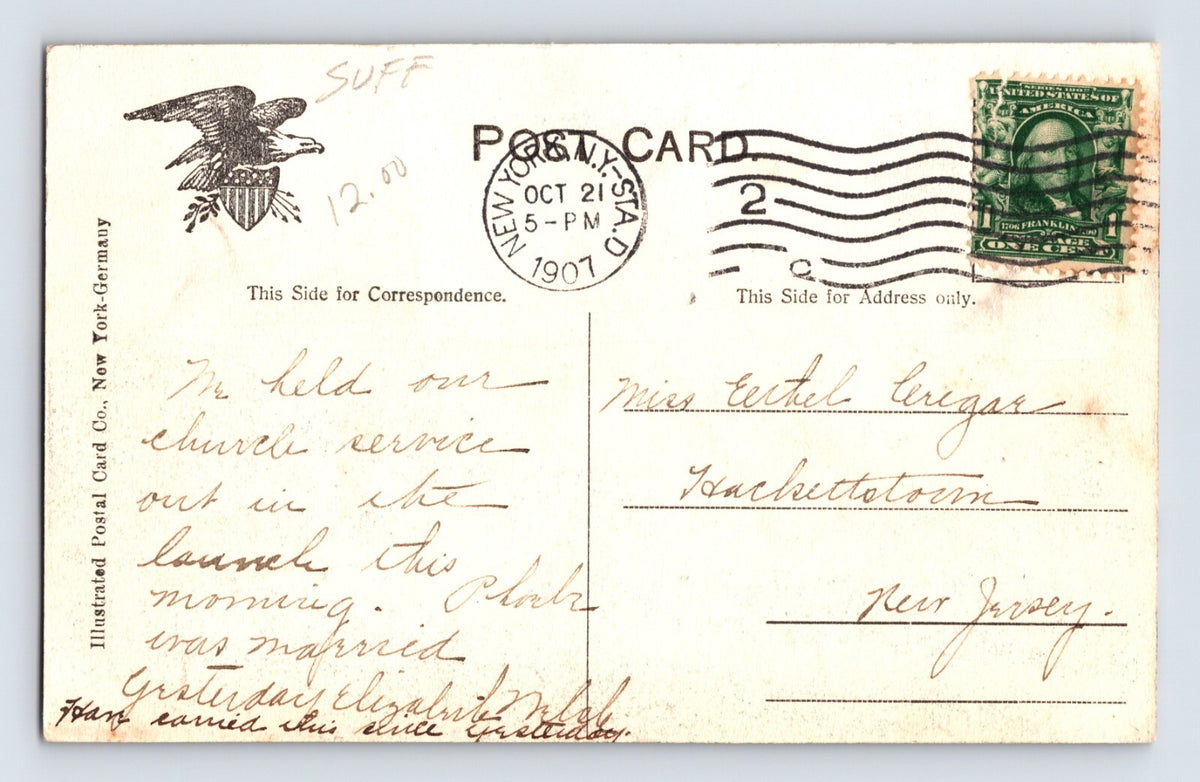 SUFF
12.00
POST CARD.
NEW YORK, N.Y.-STA.D
OCT 21
5-PM
1907
2
C
SERIES 1902
UNITED STATES OF
AMERICA
1706 FRANKLIN 1790
1 1
POSTAGE
ONE CENT
This Side for Correspondence.
This Side for Address only.
Illustrated Postal Card Co., New York-Germany
We held our
church service
out in the
launch this
morning. Phoebe
was married
Yesterday Elizabeth
Have carried this since Yesterday.
Miss Ethel Crigar
Hackettstown
New Jersey.